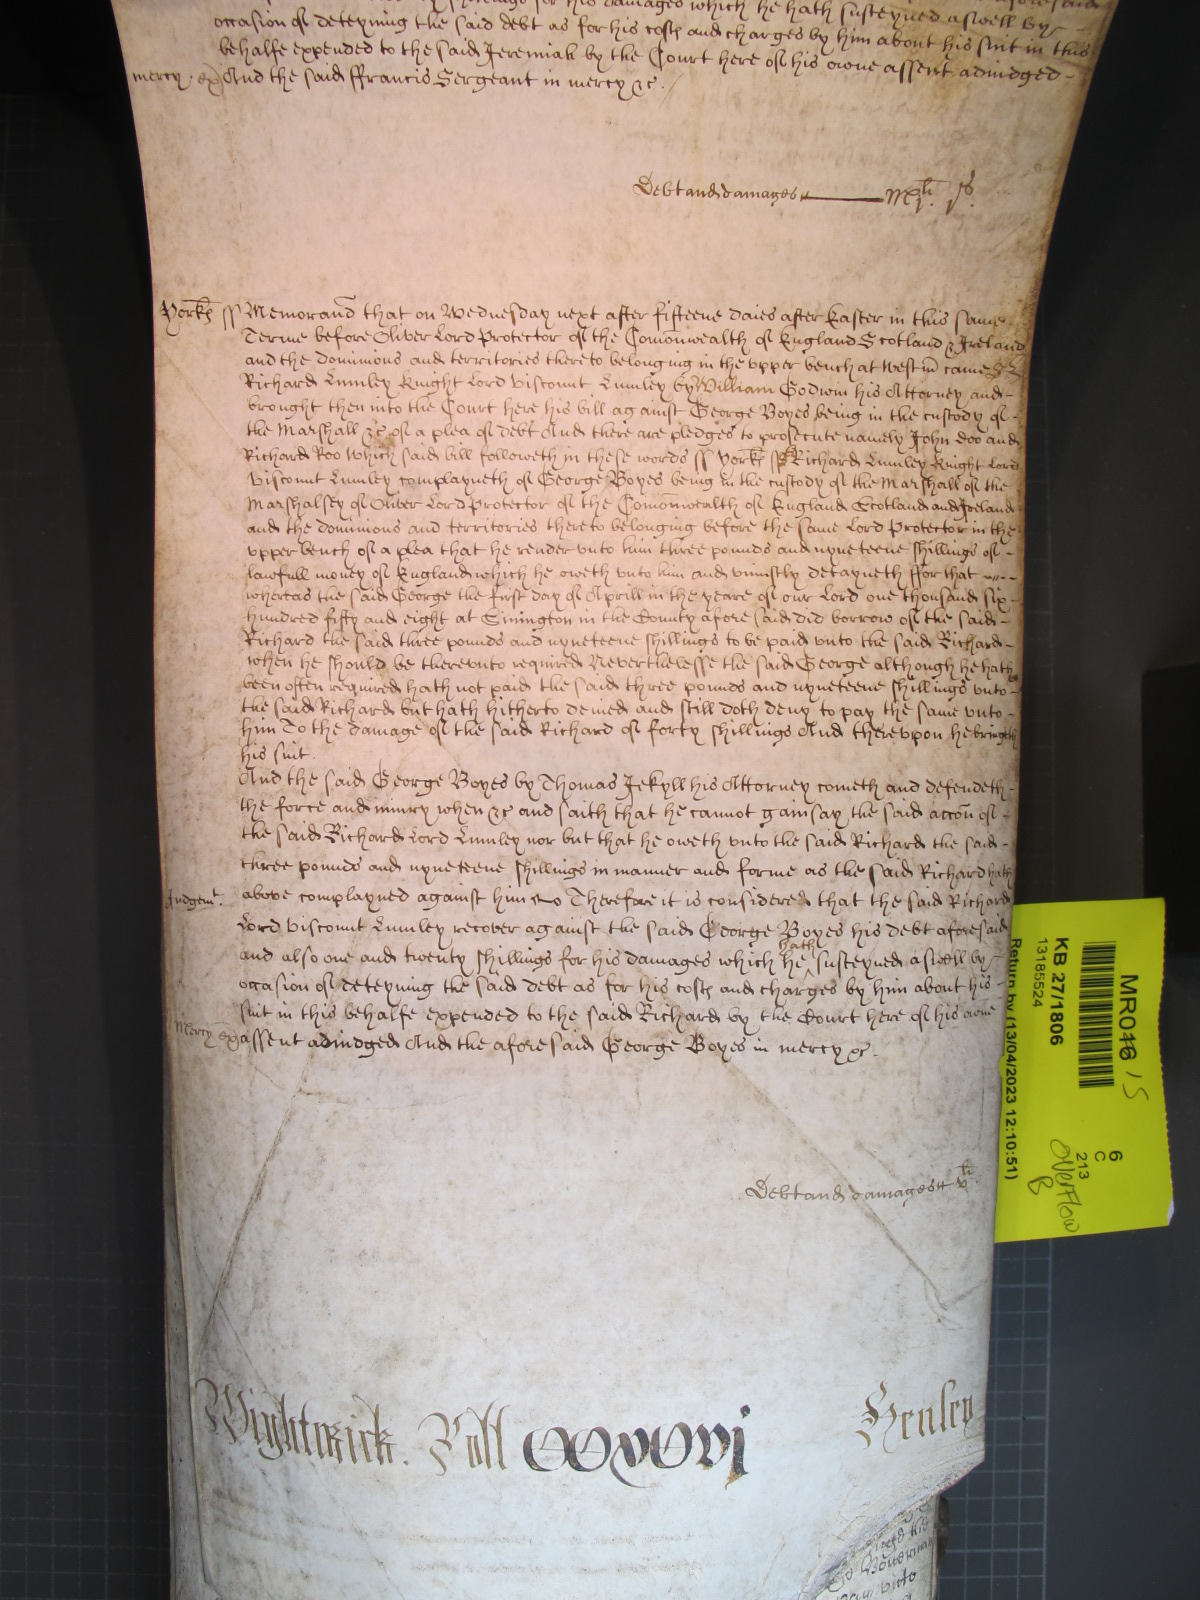 for his damages which he hath susteyned aswell by
occasion of deteyning the said debt as for his costs and charges by him about his suit in this
behalfe expended to the said Jeremiah by the Court here of his owne assent adiudged
mercy And the said ffrancis Sergeant in mercy &c.
Debt and damages
Yorks ss Memorand that on Wednesday next after fifteene daies after Easter in this same
Terme before Oliver Lord Protector of the Comonwealth of England Scotland & Ireland
and the dominions and territories thereto belonging in the vpper bench at Westm came
Richard Lumley Knight Lord Viscount Lumley by William Godwin his Attorney and
brought then into the Court here his bill against George Boyes being in the custody of
the Marshall &c of a plea of debt And there are pledges to prosecute namely John Doo and
Richard Roo Which said bill followeth in these words ss Yorks ss Richard Lumley Knight Lord
Viscount Lumley complayneth of George Boyes being in the custody of the Marshall of the
Marshalsey of Oliver Lord Protector of the Comonwealth of England Scotland and Ireland
and the dominions and territories thereto belonging before the same Lord Protector in the
vpper bench of a plea that he render vnto him three pounds and nyneteene shillings of
lawfull money of England which he oweth vnto him and vniustly detayneth ffor that
whereas the said George the first day of Aprill in the yeare of our Lord one thousand six
hundred fifty and eight at in the County aforesaid did borrow of the said
Richard the said three pounds and nyneteene shillings to be paid vnto the said Richard
when he should be therevnto required Neverthelesse the said George although he hath
been often required hath not paid the said three pounds and nyneteene shillings vnto
the said Richard but hath hitherto denied and still doth deny to pay the same vnto
him To the damage of the said Richard of forty shillings And therevpon he bringeth
his suit.
And the said George Boyes by Thomas Jekyll his Attorney cometh and defendeth
the force and iniury when &c and saith that he cannot gainsay the said accon of
the said Richard Lord Lumley nor but that he oweth vnto the said Richard the said
three pounds and nyneteene shillings in manner and forme as the said Richard hath
Judgemt. above complayned against him Therefore it is considered that the said Richard
Lord Viscount Lumley recover against the said George Boyes his debt aforesaid
and also one and twenty shillings for his damages which he hath susteyned aswell by
occasion of deteyning the said debt as for his costs and charges by him about his
suit in this behalfe expended to the said Richard by the Court here of his owne
Mercy assent adiudged And the aforesaid George Boyes in mercy &c.
Debt and damages vli
Wightwick. Roll Henley
MR046 15
KB 27/1806
13185524
Return by (13/04/2023 12:10:51)
6
C
213
Overflow
B